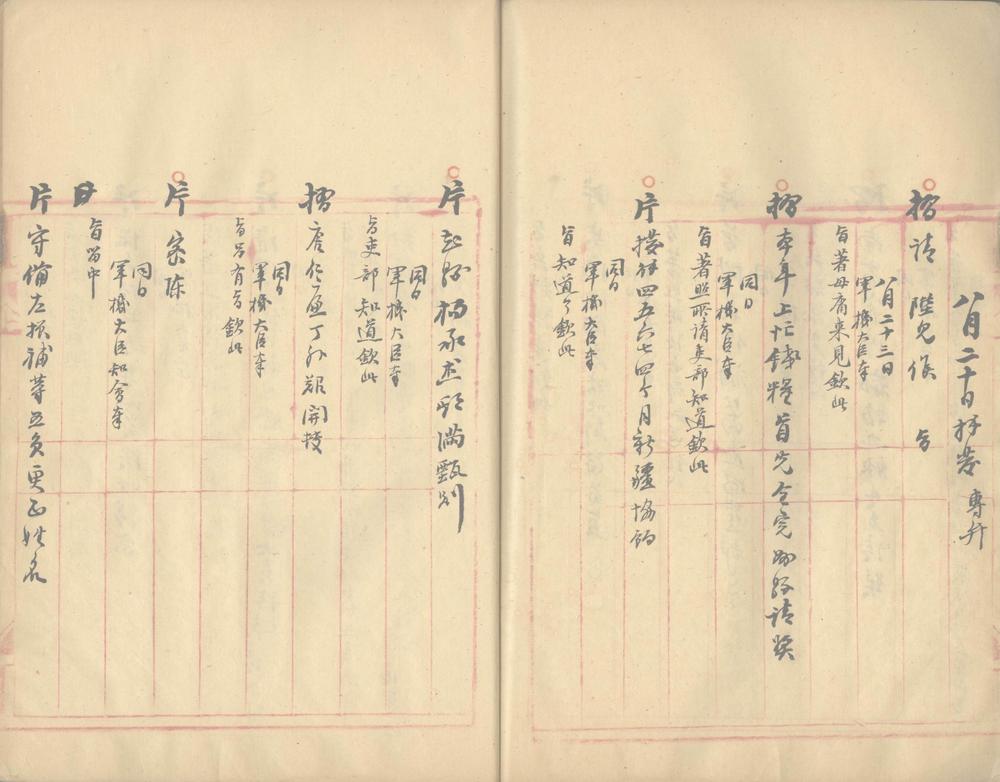 八月二十日拜發 專弁
摺 請 陛見候 旨
八月二十三日
軍機大臣奉
旨著毋庸來見欽此
摺 本年上忙錢糧首先全完 縣 請獎
同日
軍機大臣奉
旨著照所請吏部知道欽此
片 撥解四五六七四个月新疆協餉
同日
軍機大臣奉
旨知道了欽此
片 楊承 期滿甄別
同日
軍機大臣奉
旨吏部知道欽此
摺 唐 丁外艱開 
同日
軍機大臣奉
旨另有旨欽此
片 密陳
同日
軍機大臣知會奉
旨留中
片 守備左 補等五員更正姓名